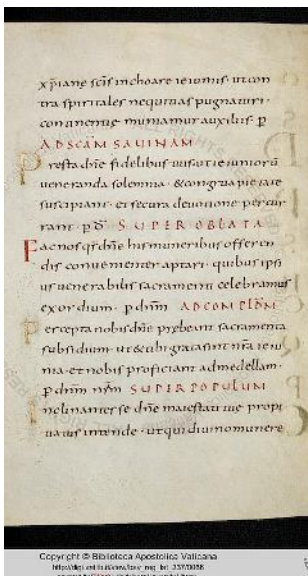 xpiane scis inchoare ieiuniis · ut con
tra spiritales nequitias pugnaturi ·
continentię muniamur auxiliis · p
AD SCAM SAVINAM
Presta dne fidelibus tuis · ut ieiuniorū
ueneranda solemnia · & congrua pietate
suscipiant · et secura deuotione percur
rant · p d SUPER OBLATA
Fac nos qs dne his muneribus offeren
dis conuenienter aptari · quibus ipsi
us uenerabilis sacramenti celebramus
exordium · p dnm AD COMPLDM
Percepta nobis dne prebeant sacramenta
subsidium · ut & tibi grata sint nra ieiu
nia · et nobis proficiant ad medellam ·
p dnm nrm SUPER POPULUM
Inclinantes se dne maiestati tuę propi
tiatus intende · ut qui diuino munere
Copyright © Biblioteca Apostolica Vaticana